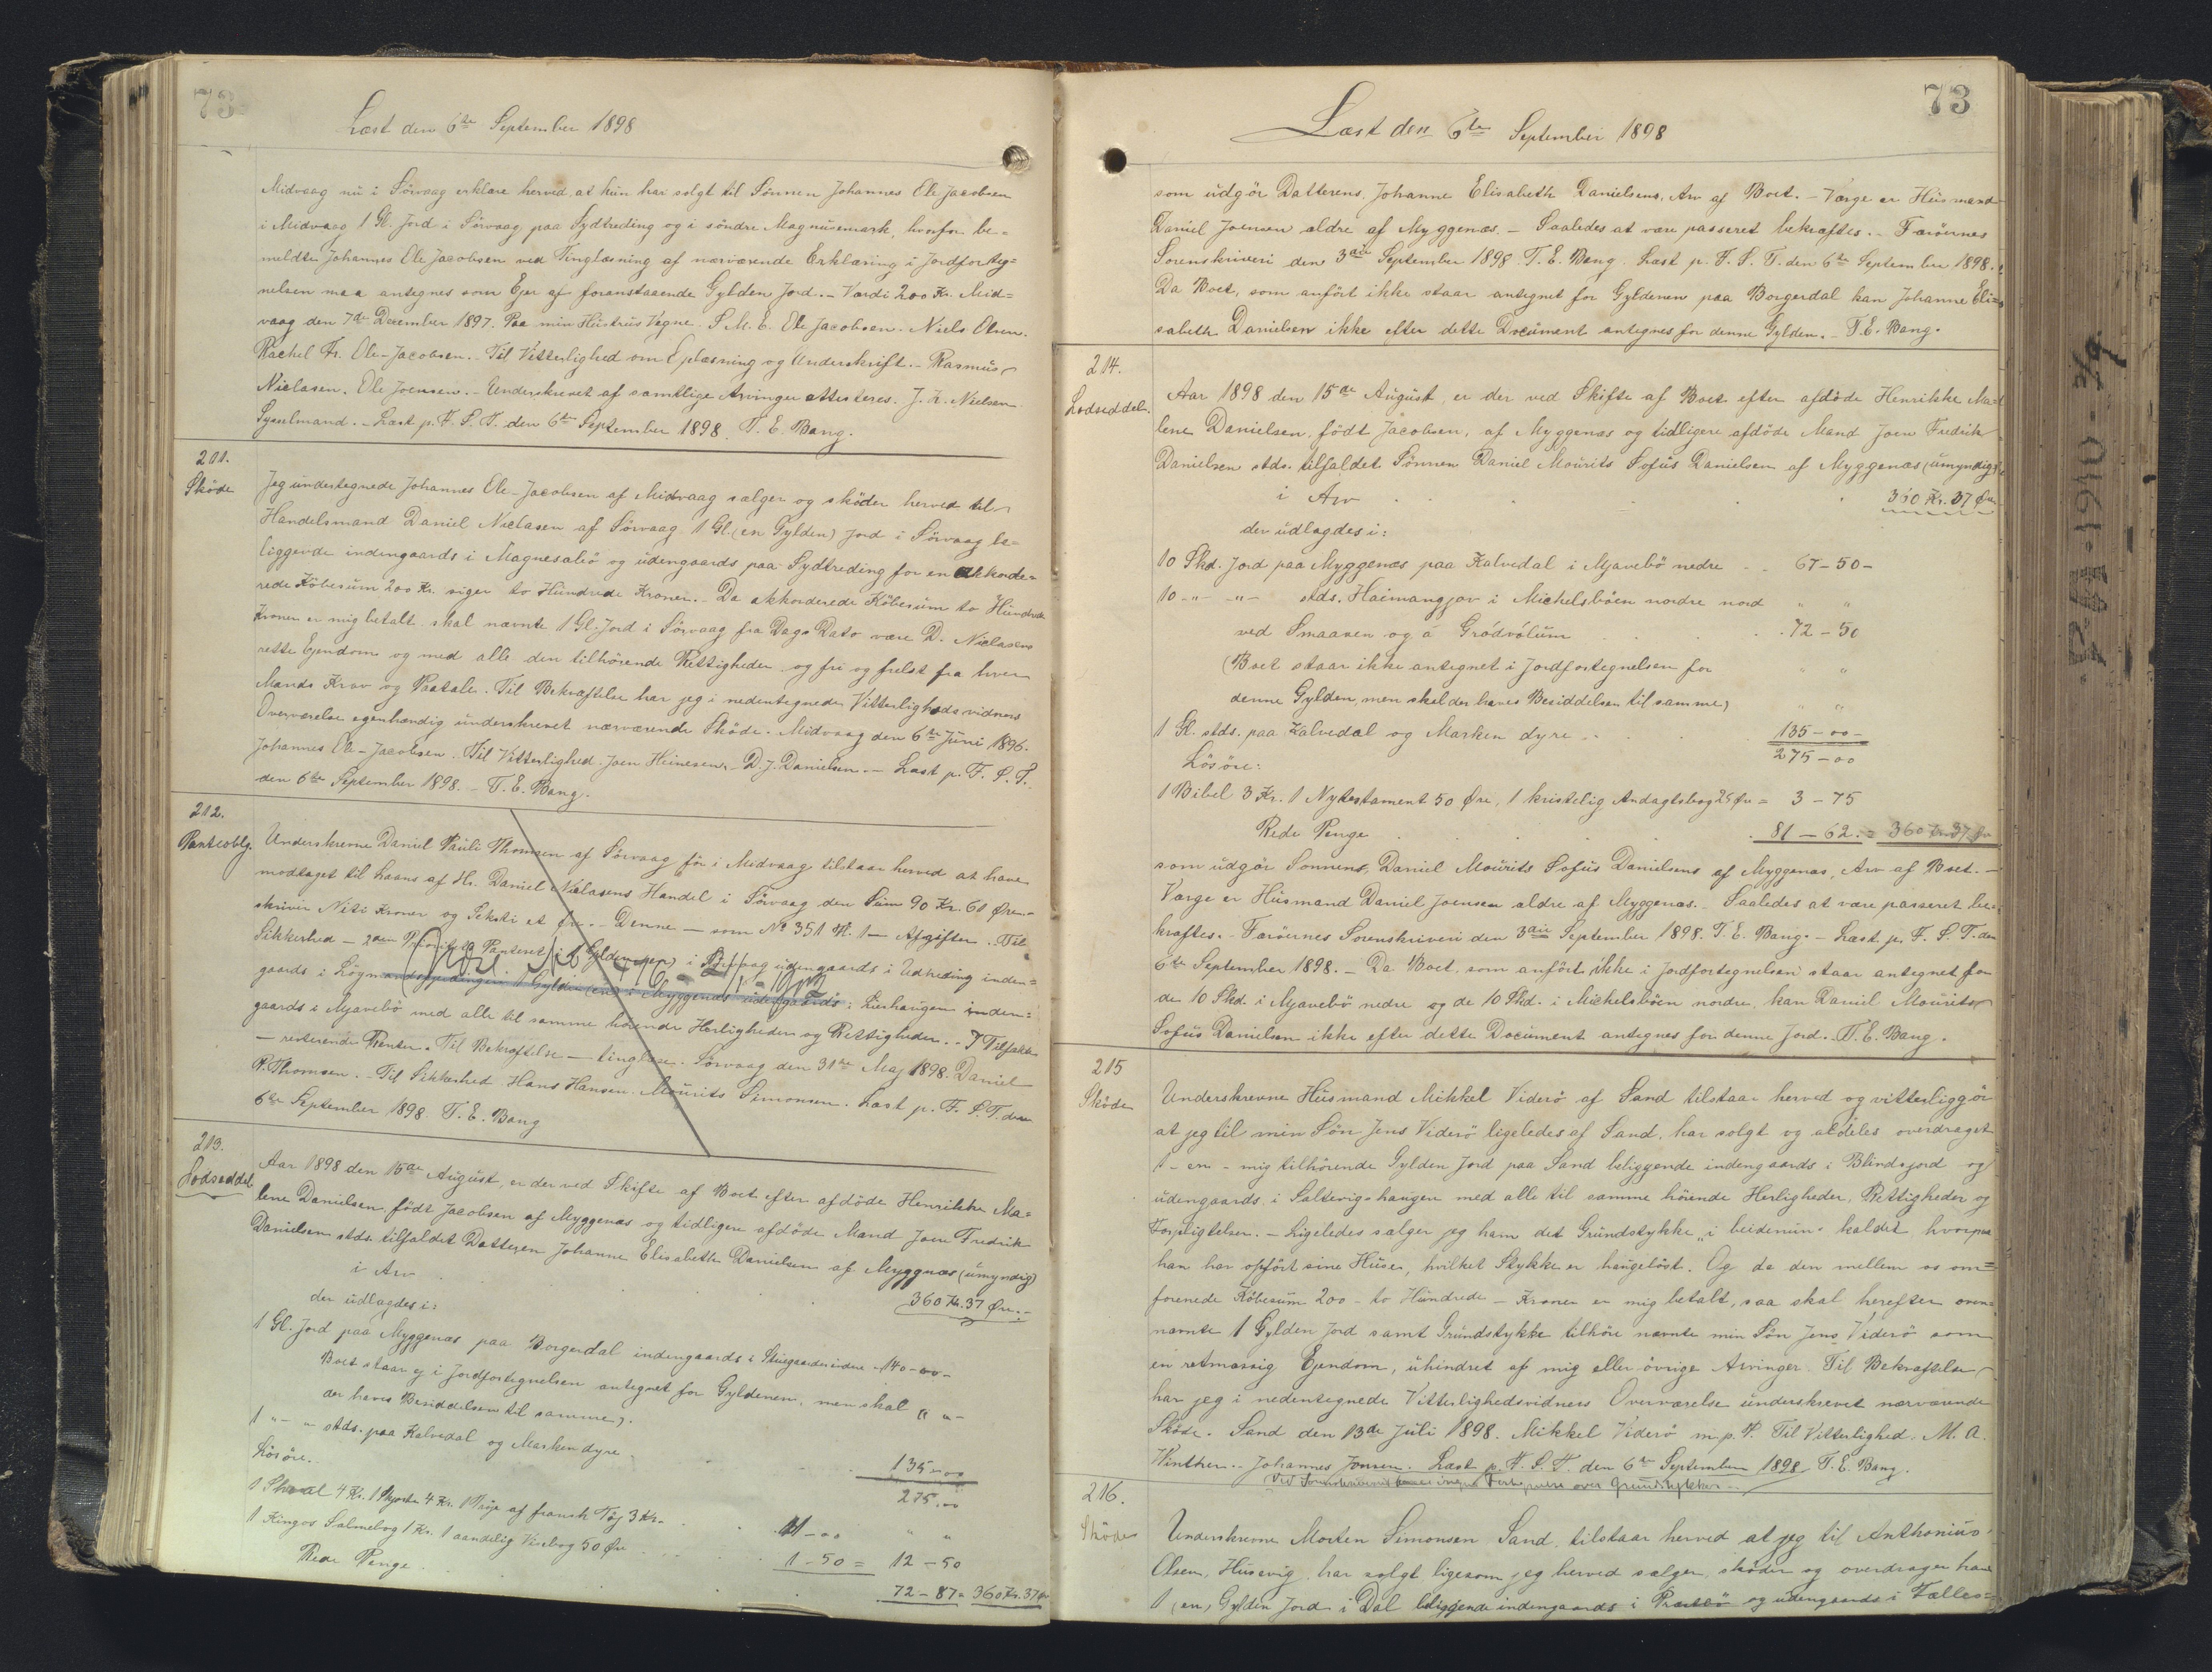 73
Læst den 6te September 1898
Midvaag nu i Sörvaag erklære herved at hun har solgt til Sönnen Johannes Ole Jacobsen
i Midvaag 1 Gl. Jord i Sörvaag paa Sydtreding og i söndre Magnusemark, hvorfor be=
meldte Johannes Ole Jacobsen ved Tinglæsning af nærværende Erklæring i Jordforteg=
nelsen maa antegnes som Ejer af foranstaaende Gylden Jord. - Værdi 200 Kr. Mid=
vaag den 7de December 1897. Paa min Hustrus Vegne. S. M. E. Ole Jacobsen. Niels Olsen.
Rachel Fr. Ole-Jacobsen. Til Vitterlighed om Oplæsning og Underskrift. - Rasmus
Niclasen. Ole Joensen. - Underskrevet af samtlige Arvinger attesteres. J. L. Nielsen
Sysselmand. - Læst p. F. S. T. den 6te September 1898. T. E. Bang.
211.
Sköde
Jeg undertegnede Johannes Ole-Jacobsen af Midvaag sælger og sköder herved til
Handelsmand Daniel Niclasen af Sörvaag 1 Gl. (en Gylden) Jord i Sörvaag be=
liggende indengaards i Magnesabö og udengaards paa Sydtreding for en akkorde=
rede Köbesum 200 Kr. siger to Hundrede Kroner. - Da akkorderede Köbesum to Hundrede
Kroner er mig betalt skal nævnte 1 Gl. Jord i Sörvaag fra Dags Dato være D. Niclasens
rette Ejendom og med alle den tilhörende Rettigheder og fri og frelst fra hver
Mands Krav og Paatale. Til Bekræftelse har jeg i nedentegnede Vitterlighedsvidners
Overværelse egenhændig underskrevet nærværende Sköde. Midvaag den 6te Juni 1896.
Johannes Ole-Jacobsen. Til Vitterlighed Joen Heinesen. D. J. Danielsen. - Læst p. F. S. T.
den 6te September 1898. - T. E. Bang.
212.
Panteoblg.
Underskrevne Daniel Pauli Thomsen af Sörvaag för i Midvaag tilstaar herved at have
modtaget til Laans af Hr. Daniel Niclasens Handel i Sörvaag den Sum 90 Kr. 61 Øre -
skriver Niti Kroner og Seksti et Øre. - Denne - som No 351 - Afgifter. Til
Sikkerhed - 2den Prioritets Panteret i 1 Gylden (en) i Sörvaag udengaards i Udtreding inden=
gaards i Lögmandsgjedingen 1 Gylden (en) i Myggenæs udengaards i Lierhaugen inden=
gaards i Mjavebö med alle til samme hörende Herligheder og Rettigheder. - I Tilfælde
- resterende Renter. Til Bekræftelse - tinglæse. Sörvaag den 31te Maj 1898. Daniel
P. Thomsen. - Til Sikkerhed Hans Hansen. Mourits Simonsen. Læst p. F. S. T. den
6te September 1898. T. E. Bang
213.
Lodseddel
Aar 1898 den 15de August, er der ved Skifte af Boet efter afdöde Henrikke Ma=
lene Danielsen, födt Jacobsen af Myggenæs og tidligere afdöde Mand Joen Fredrik
Danielsen stds. tilfaldet Datteren Johanne Elisabeth Danielsen af Myggnæs (umyndig)
i Arv 360 Kr. 37 Øre. -
der udlagdes i:
1 Gl. Jord paa Myggenæs paa Borgerdal indengaards i Stuegaarden indre - 140-00-
Boet staar ej i Jordfortegnelsen antegnet for Gyldenen, men skal " " -
der haves Besiddelsen til samme).
1 " - " stds. paa Kalvedal og Marken dyre 135-00
Lösöre. 275.00
1 Shawl 4 Kr. 1 Skjorte 4 Kr. 1 Tröje af fransk Töj 3 Kr. 11-00 " "
1 Kingos Salmebog 1 Kr. 1 aandelig Visebog 50 Øre 1-50 = 12-50
Rede Penge 72-87 = 360 Kr. 37 Ør
73
Læst den 6te September 1898
som udgör Datterens, Johanne Elisabeth Danielsens, Arv af Boet. - Værge er Husmand
Daniel Joensen ældre af Myggenæs. - Saaledes at være passeret bekræftes. - Færöernes
Sorenskriveri den 3die September 1898. T. E. Bang. Læst p. F. S. T. den 6te September 1898. -
Da Boet, som anfört ikke staar antegnet for Gyldenen paa Borgerdal kan Johanne Eli=
sabeth Danielsen ikke efter dette Document antegnes for denne Gylden. - T. E. Bang.
214.
Lodseddel.
Aar 1898 den 15de August er der ved Skifte af Boet efter afdöde Henrikke Ma=
lene Danielsen, födt Jacobsen, af Myggenæs og tidligere afdöde Mand Joen Fredrik
Danielsen stds. tilfaldet Sönnen Daniel Mourits Sofus Danielsen af Myggenæs (umyndig)
i Arv 360 Kr. 37 Øre
der udlagdes i:
10 Skd. Jord paa Myggenæs paa Kalvedal i Mjavebö nedre 67-50-
10 -"- "- stds. Haimangjov i Michelsböen nordre nord " "
ved Smaaven og á Gródvólum 72-50
(Boet staar ikke antegnet i Jordfortegnelsen for " "
denne Gylden, men skal der haves Besiddelsen til samme) " "
1 Gl. stds. paa Kalvedal og Marken dyre 135-00-
Lösöre: 275-00
1 Bibel 3 Kr. 1 Nytestament 50 Øre, 1 kristelig Andagtsbog 25 Øre = 3-75
Rede Penge 81-62. = 360 Kr. 37 Ør
som udgör Sönnens, Daniel Mourits Sofus Danielsens af Myggenæs, Arv af Boet. -
Værge er Husmand Daniel Joensen ældre af Myggenæs. Saaledes at være passeret be=
kræftes. - Færöernes Sorenskriveri den 3die September 1898. T. E. Bang. - Læst p. F. S. T. den
6te September 1898. - Da Boet, som anfört ikke i Jordfortegnelsen staar antegnet for
de 10 Skd. i Mjavebö nedre og de 10 Skd. i Michelsböen nordre, kan Daniel Mourits
Sofus Danielsen ikke efter dette Document antegnes for denne Jord. T. E. Bang.
215
Sköde
Underskrevne Husmand Mikkel Viderö af Sand tilstaar herved og vitterliggör
at jeg til min Sön Jens Viderö ligeledes af Sand, har solgt og aldeles overdraget
1 - en - mig tilhörende Gylden Jord paa Sand beliggende indengaards i Blindsgjord og
udengaards i Saltevigshaugen med alle til samme hörende Herligheder, Rettigheder og
Forpligtelser. - Ligeledes sælger jeg ham det Grundstykke "i beidenun" kaldet hvorpaa
han har opfört sine Huse, hvilket Stykke er haugelöst. Og da den mellem os om=
forenede Köbesum 200 - to Hundrede - Kroner er mig betalt, saa skal herefter oven=
nævnte 1 Gylden Jord samt Grundstykke tilhöre nævnte min Sön Jens Viderö som
en retmæssig Ejendom, uhindret af mig eller övrige Arvinger. Til Bekræftelse
har jeg i nedentegnede Vitterlighedsvidners Overværelse underskrevet nærværende
Sköde. Sand den 13de Juli 1898. Mikkel Viderö m. p. P. Til Vitterlighed. M. A.
Winther. - Johannes Jensen. Læst p. F. S. T. den 6te September 1898. T. E. Bang.
Ved Sorenskriveriet over Grundstykker -
216.
Sköde
Underskrevne Morten Simonsen Sand, tilstaar herved at jeg til Anthonius
Olsen, Husevig har solgt ligesom jeg herved sælger, sköder og overdrager ham
1 (en) Gylden Jord i Dal beliggende indengaards i og udengaards i Fælles=